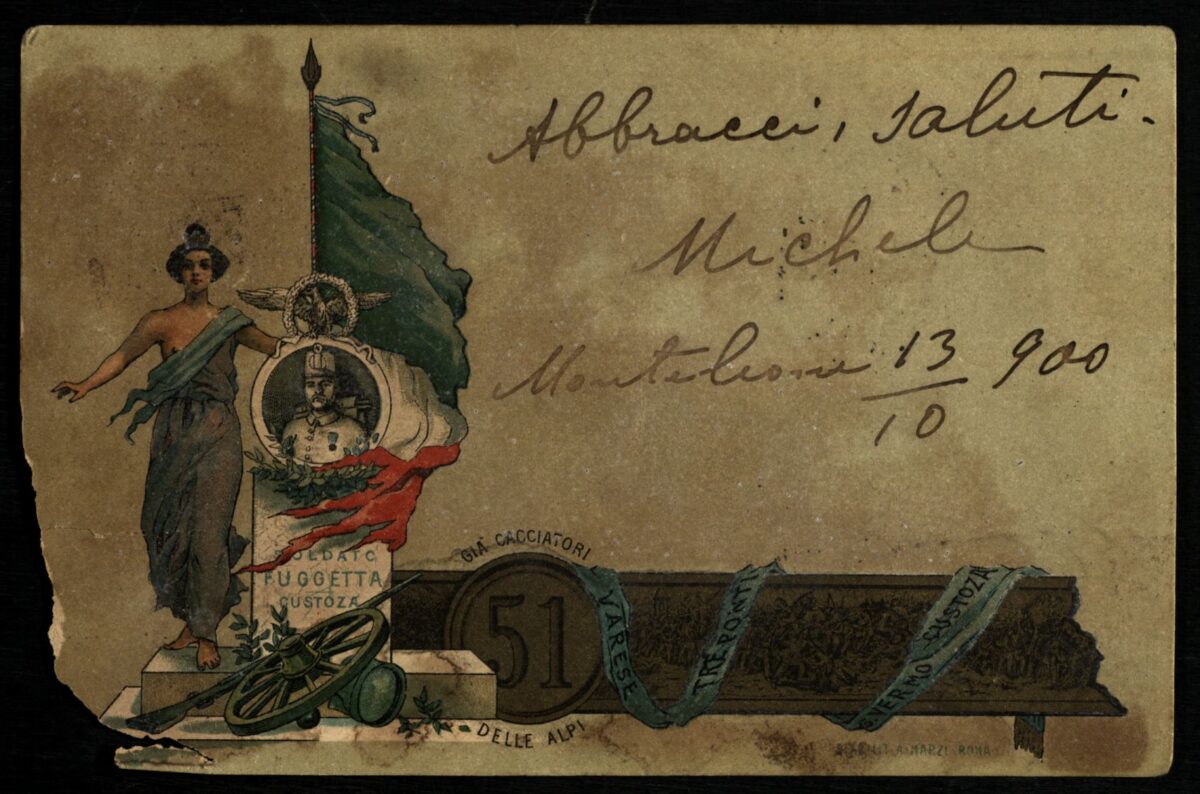 Abbracci, saluti.
Michele
Monteleone 13/10 900
SOLDATO
FUGGETTA
CUSTOZA
GIÀ CACCIATORI
51
DELLE ALPI
VARESE
TREPONTI
S. VERMO CUSTOZA
A. MARZI ROMA